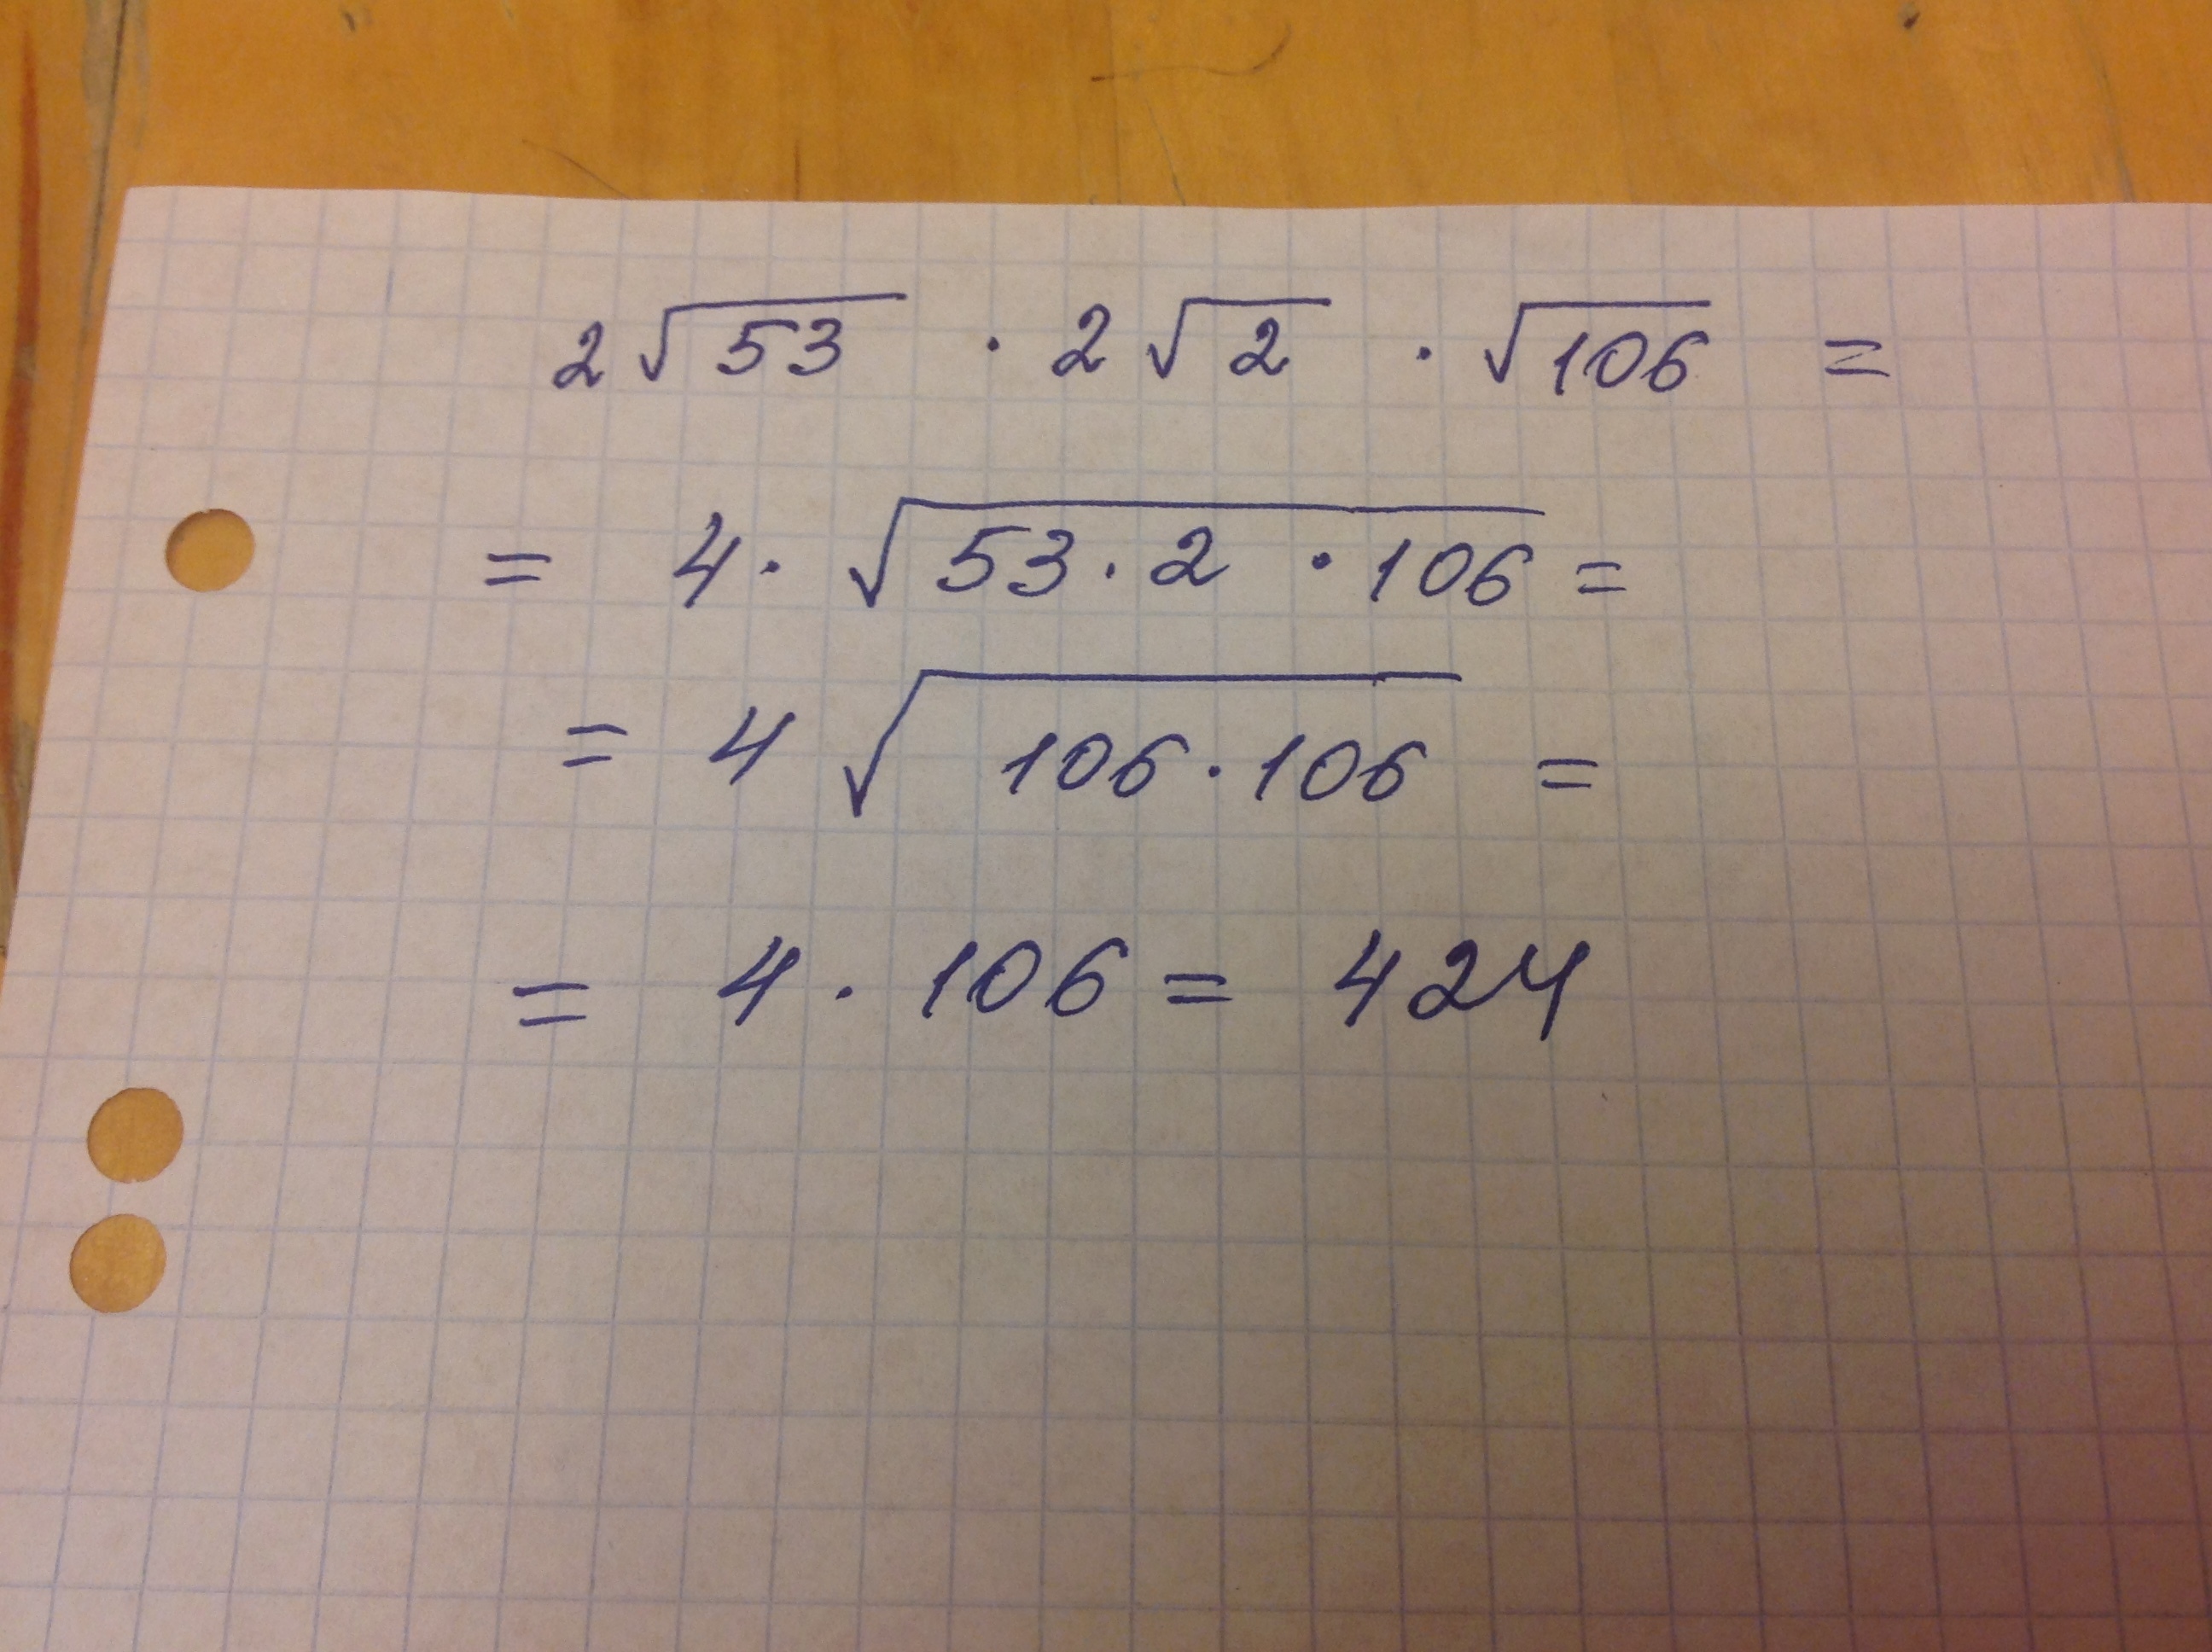 2√53 · 2√2 · √106 =
= 4 · √53 · 2 · 106 =
= 4 √106 · 106 =
= 4 · 106 = 424